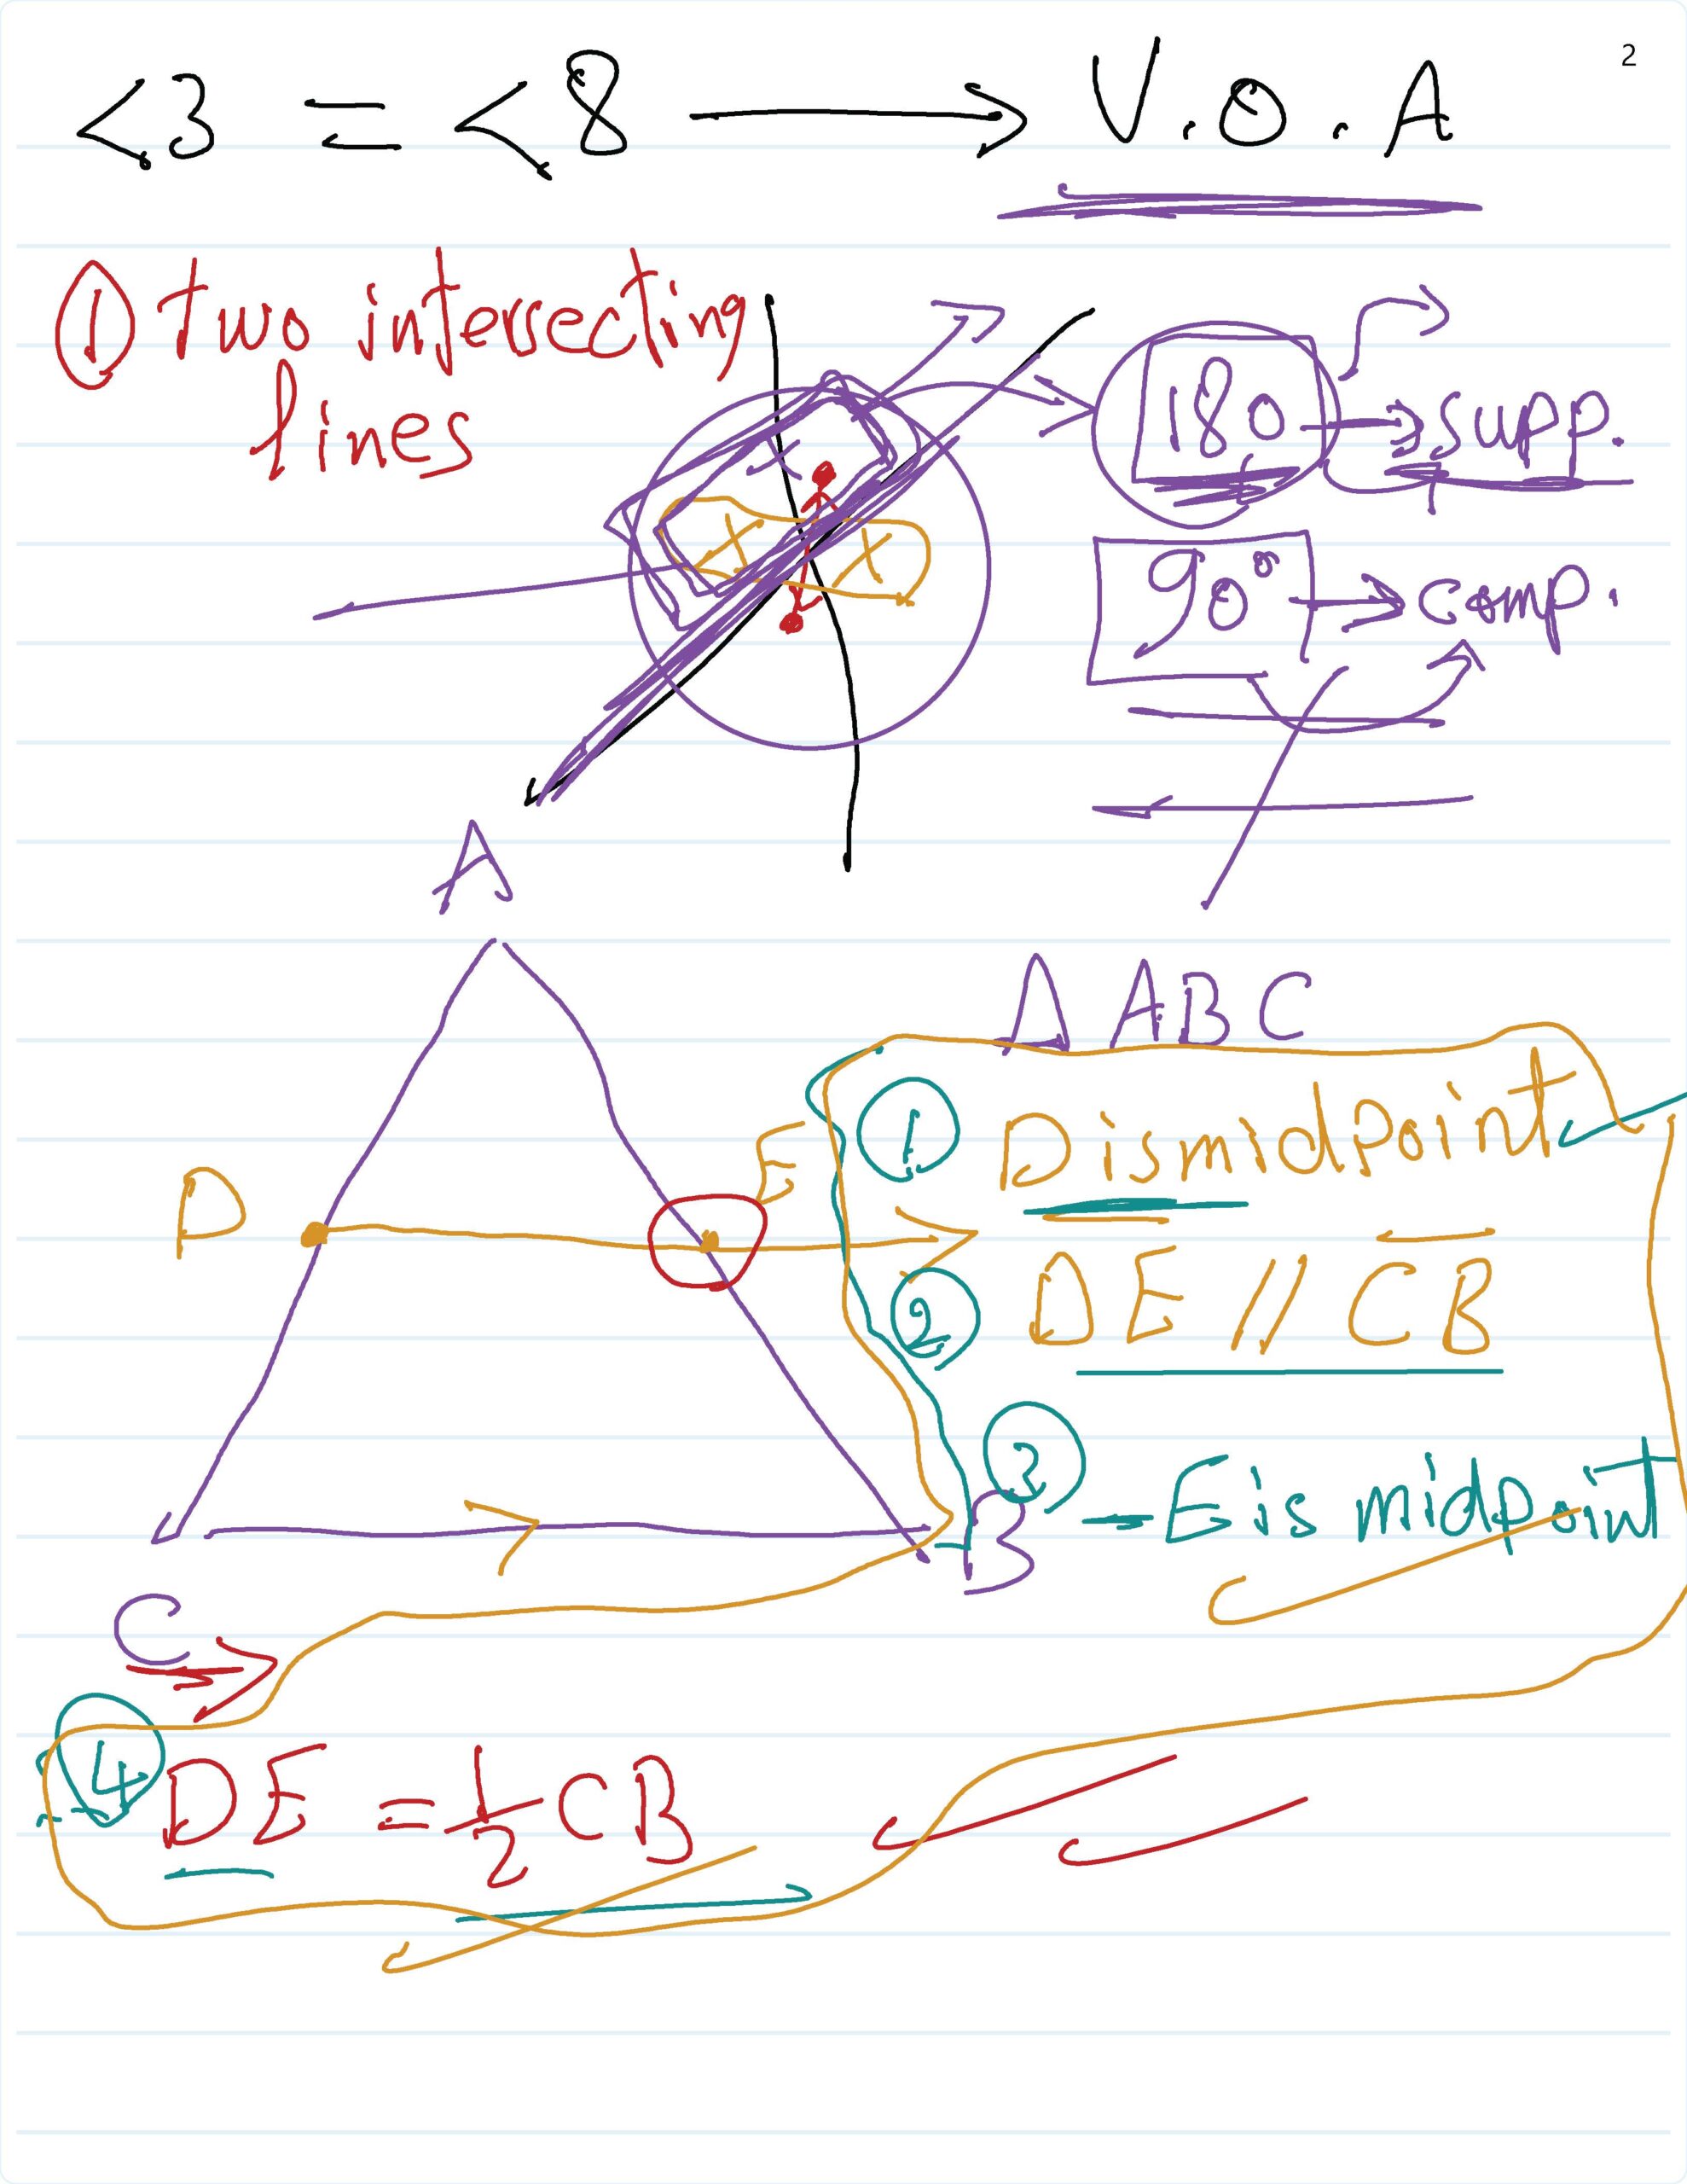 2
<3 = <8 → V.O.A
① two intersecting
lines
180 → supp.
90° → comp.
x x
A
Δ ABC
① D is midpoint
D E
② DE // CB
③ - E is midpoint
B
C
④ DE = 1/2 CB